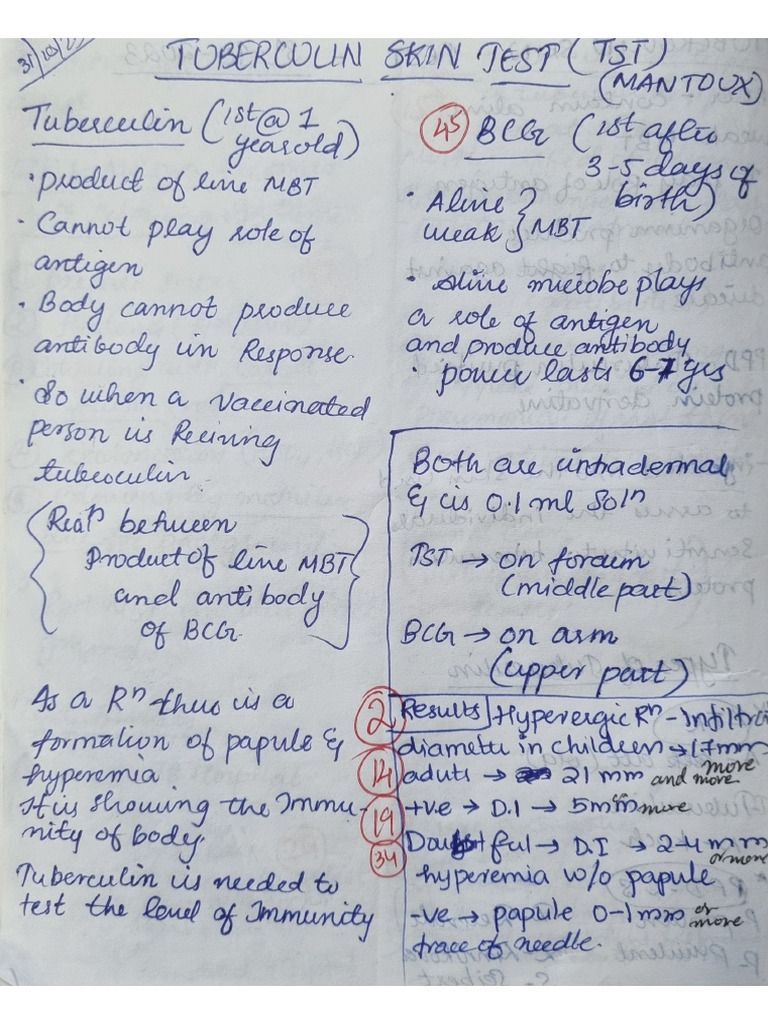 31/03/23
TUBERCULIN SKIN TEST (TST)
(MANTOUX)
Tuberculin (1st @ 1
year old)
• product of live MBT
• Cannot play role of
antigen
• Body cannot produce
antibody in Response.
• So when a vaccinated
person is Reciving
tuberculin
Reatn between
Product of live MBT
and antibody
of BCG.
As a Rn there is a
formation of papule &
hyperemia
It is showing the Immu-
nity of body.
Tuberculin is needed to
test the level of Immunity
45 BCG (1st after
3-5 days of
birth)
• Alive
weak } MBT
• Alive microbe plays
a role of antigen
and produce antibody
• power lasts 6-7 yrs
Both are intradermal
& is 0.1 ml Soln
TST → on forearm
(middle part)
BCG → on arm
(upper part)
2 Results Hyperergic Rn - Infiltra
diameter in children → 17mm
more
14 aduts → 21 mm and more
19 +ve → D.I → 5mm or more
34 Doubtful → D.I → 2-4 mm
or more
hyperemia w/o papule
-ve → papule 0-1mm or
more
trace of needle.